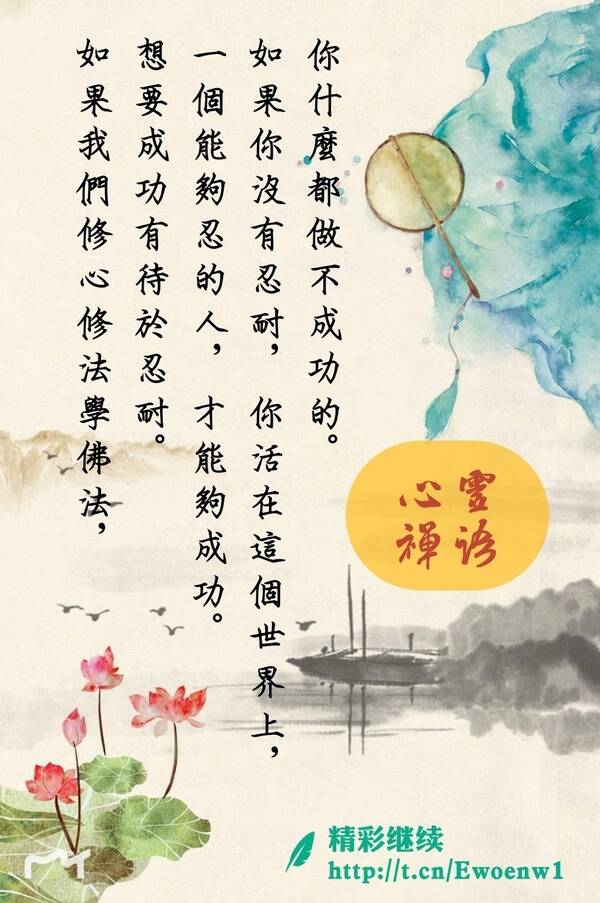 如果我們修心修法學佛法，
想要成功有待於忍耐。
一個能夠忍的人，才能夠成功。
如果你沒有忍耐，你活在這個世界上，
你什麼都做不成功的。
心靈
禪语
精彩继续
http://t.cn/Ewoenw1